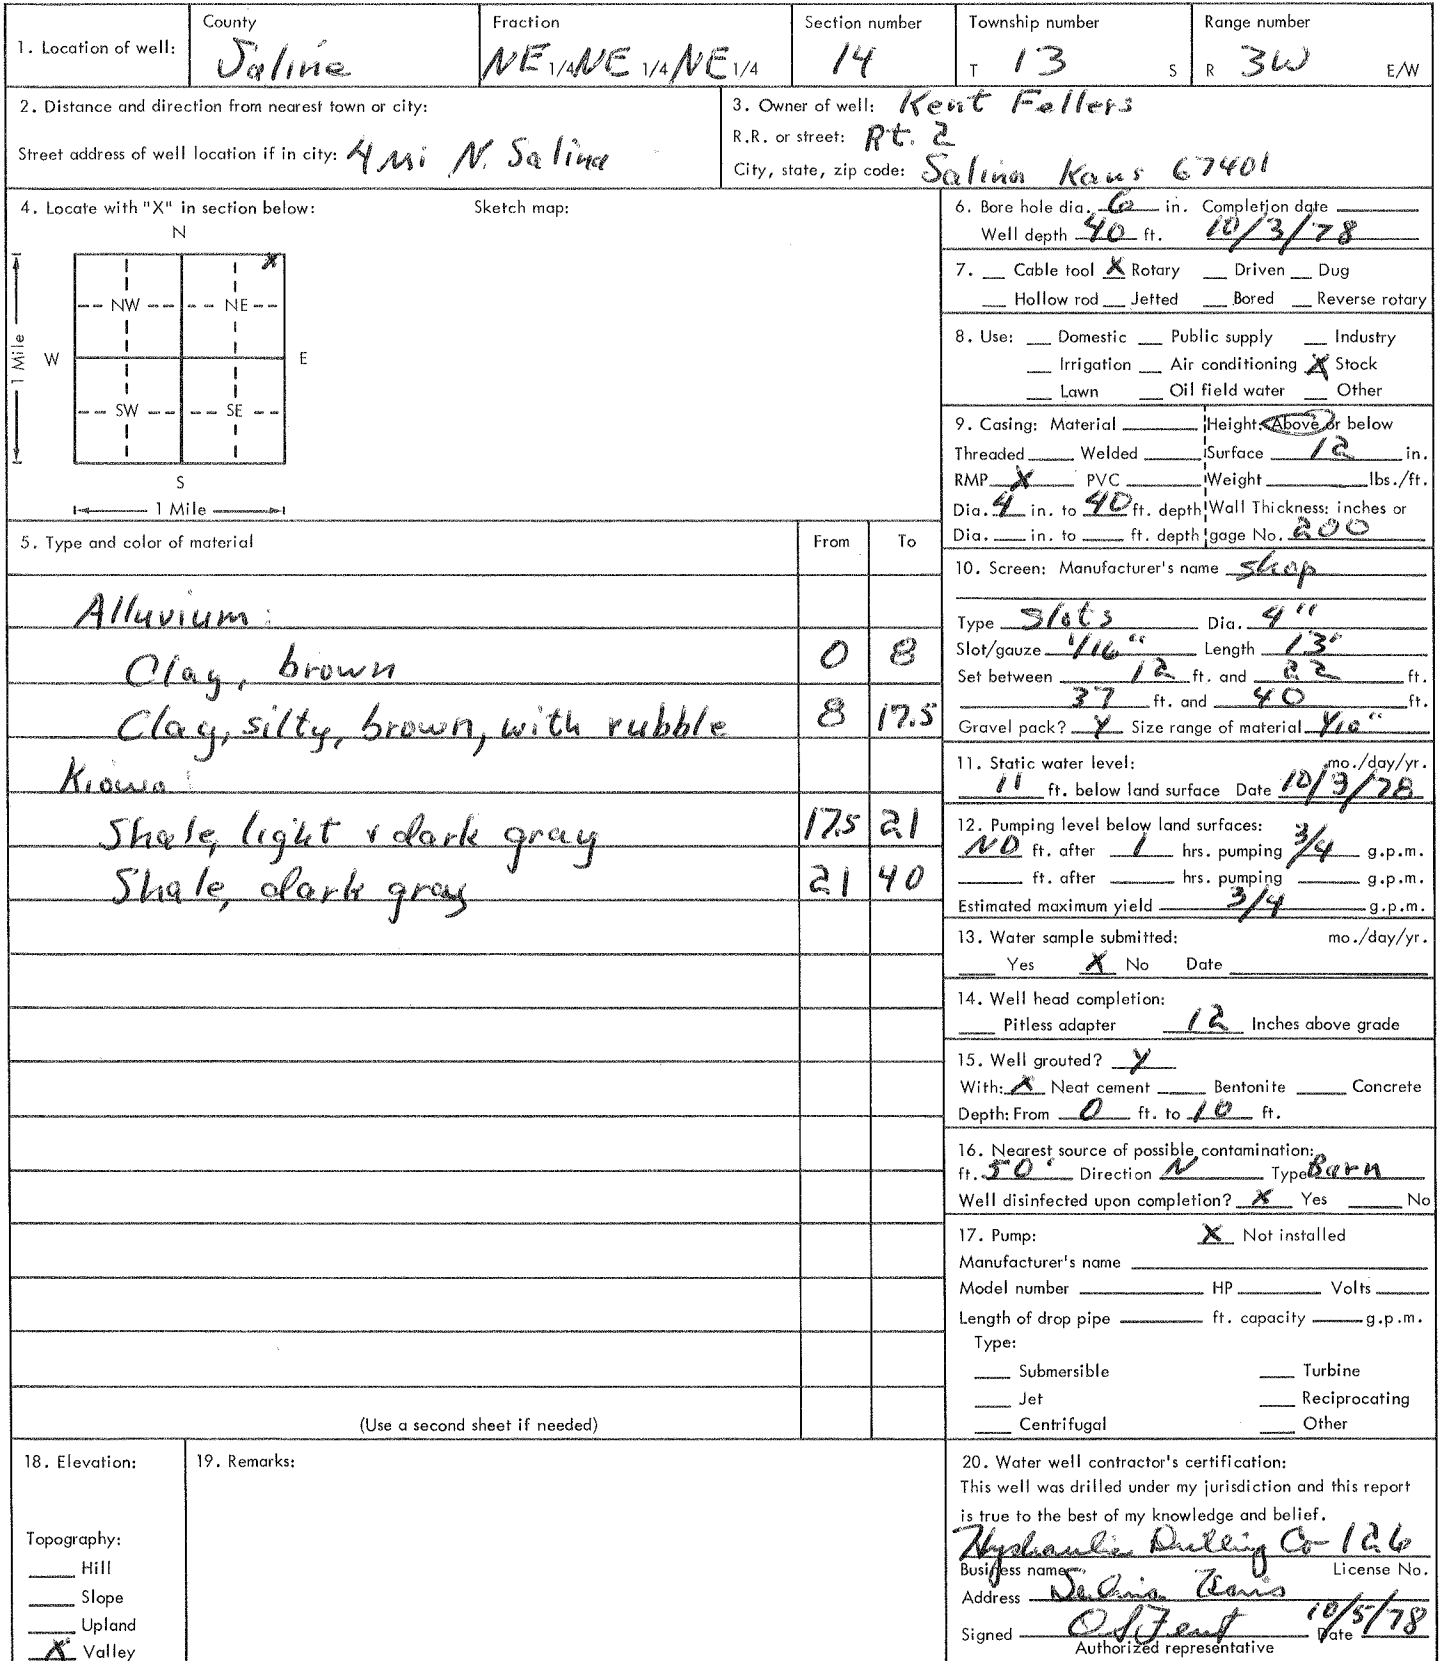 1. Location of well: County Saline Fraction NE 1/4 NE 1/4 NE 1/4 Section number 14 Township number T 13 S Range number R 3W E/W
2. Distance and direction from nearest town or city:
Street address of well location if in city: 4 mi N. Salina
3. Owner of well: Kent Fellers
R.R. or street: Rt. 2
City, state, zip code: Salina Kans 67401
4. Locate with "X" in section below: Sketch map:
N
X
NW NE
W E
1 Mile
SW SE
S
1 Mile
5. Type and color of material From To
Alluvium:
Clay, brown 0 8
Clay, silty, brown, with rubble 8 17.5
Kiowa:
Shale, light & dark gray 17.5 21
Shale, dark gray 21 40
(Use a second sheet if needed)
6. Bore hole dia. 6 in. Completion date
Well depth 40 ft. 10/3/78
7. Cable tool X Rotary Driven Dug
Hollow rod Jetted Bored Reverse rotary
8. Use: Domestic Public supply Industry
Irrigation Air conditioning X Stock
Lawn Oil field water Other
9. Casing: Material Height: Above or below
Threaded Welded Surface 12 in.
RMP X PVC Weight lbs./ft.
Dia. 4 in. to 40 ft. depth Wall Thickness: inches or
Dia. in. to ft. depth gage No. 200
10. Screen: Manufacturer's name shop
Type Slots Dia. 4"
Slot/gauze 1/16" Length 13'
Set between 12 ft. and 22 ft.
37 ft. and 40 ft.
Gravel pack? Y Size range of material
11. Static water level: mo./day/yr.
11 ft. below land surface Date 10/3/78
12. Pumping level below land surfaces:
ND ft. after 1 hrs. pumping 3/4 g.p.m.
ft. after hrs. pumping g.p.m.
Estimated maximum yield 3/4 g.p.m.
13. Water sample submitted: mo./day/yr.
Yes X No Date
14. Well head completion:
Pitless adapter 12 Inches above grade
15. Well grouted? Y
With: X Neat cement Bentonite Concrete
Depth: From 0 ft. to 10 ft.
16. Nearest source of possible contamination:
ft. 50' Direction N Type Barn
Well disinfected upon completion? X Yes No
17. Pump: X Not installed
Manufacturer's name
Model number HP Volts
Length of drop pipe ft. capacity g.p.m.
Type:
Submersible Turbine
Jet Reciprocating
Centrifugal Other
18. Elevation:
Topography:
Hill
Slope
Upland
X Valley
19. Remarks:
20. Water well contractor's certification:
This well was drilled under my jurisdiction and this report
is true to the best of my knowledge and belief.
Hydraulic Drilling Co 126
Business name License No.
Address Salina Kans
Signed O S Fent Date 10/5/78
Authorized representative